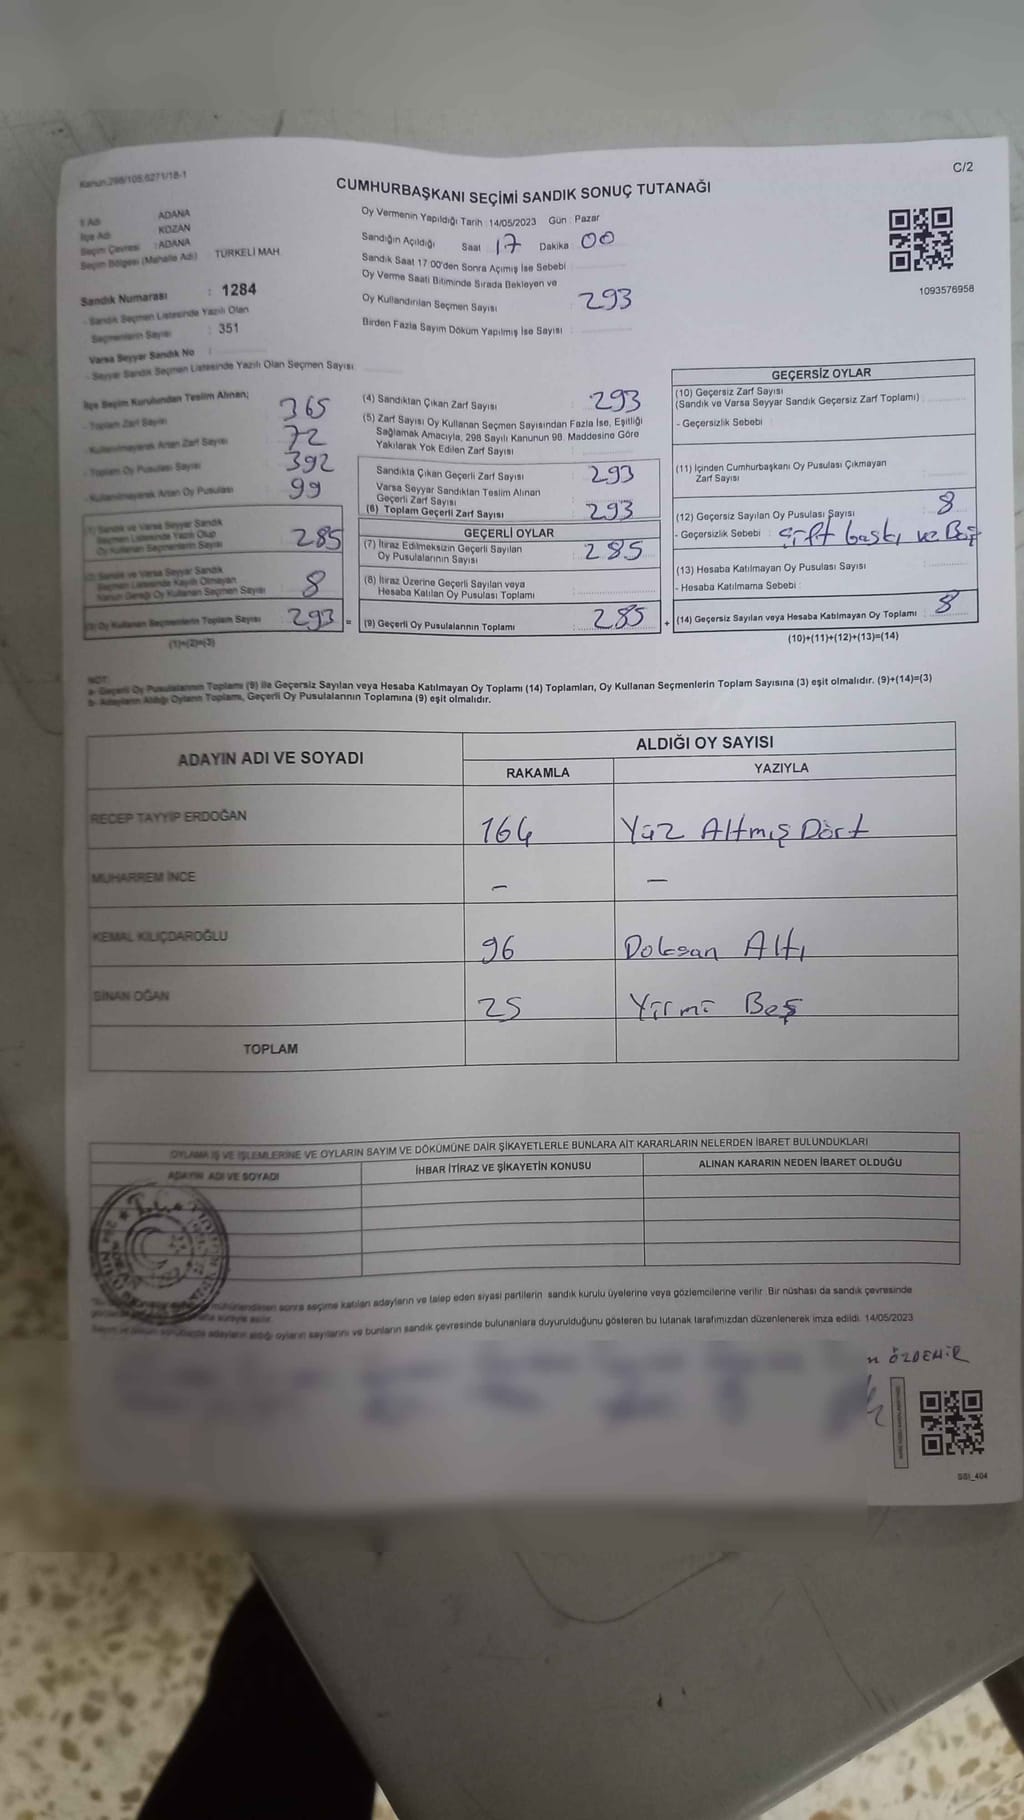 Kanun:298/105,6271/18-1
C/2
CUMHURBAŞKANI SEÇİMİ SANDIK SONUÇ TUTANAĞI
İl Adı ADANA
İlçe Adı KOZAN
Seçim Çevresi : ADANA
Seçim Bölgesi (Mahalle Adı) TÜRKELİ MAH
Sandık Numarası : 1284
- Sandık Seçmen Listesinde Yazılı Olan
Seçmenlerin Sayısı : 351
Varsa Seyyar Sandık No :
- Seyyar Sandık Seçmen Listesinde Yazılı Olan Seçmen Sayısı
Oy Vermenin Yapıldığı Tarih : 14/05/2023 Gün : Pazar
Sandığın Açıldığı Saat 17 Dakika 00
Sandık Saat 17:00'den Sonra Açımış İse Sebebi
Oy Verme Saati Bitiminde Sırada Bekleyen ve
Oy Kullandırılan Seçmen Sayısı : 293
Birden Fazla Sayım Döküm Yapılmış İse Sayısı :
1093576958
İlçe Seçim Kurulundan Teslim Alınan;
- Toplam Zarf Sayısı 365
- Kullanılmayarak Artan Zarf Sayısı 72
- Toplam Oy Pusulası Sayısı 392
- Kullanılmayarak Artan Oy Pusulası 99
(1) Sandık ve Varsa Seyyar Sandık
Seçmen Listesinde Yazılı Olup
Oy Kullanan Seçmenlerin Sayısı 285
(2) Sandık ve Varsa Seyyar Sandık
Seçmen Listesinde Kayıtlı Olmayan
Kanun Gereği Oy Kullanan Seçmen Sayısı 8
(3) Oy Kullanan Seçmenlerin Toplam Sayısı : 293 =
(1)+(2)=(3)
(4) Sandıktan Çıkan Zarf Sayısı : 293
(5) Zarf Sayısı Oy Kullanan Seçmen Sayısından Fazla İse, Eşitliği
Sağlamak Amacıyla, 298 Sayılı Kanunun 98. Maddesine Göre
Yakılarak Yok Edilen Zarf Sayısı
Sandıkta Çıkan Geçerli Zarf Sayısı : 293
Varsa Seyyar Sandıktan Teslim Alınan
Geçerli Zarf Sayısı
(6) Toplam Geçerli Zarf Sayısı : 293
GEÇERLİ OYLAR
(7) İtiraz Edilmeksizin Geçerli Sayılan
Oy Pusulalarının Sayısı : 285
(8) İtiraz Üzerine Geçerli Sayılan veya
Hesaba Katılan Oy Pusulası Toplamı
(9) Geçerli Oy Pusulalarının Toplamı : 285 +
GEÇERSİZ OYLAR
(10) Geçersiz Zarf Sayısı
(Sandık ve Varsa Seyyar Sandık Geçersiz Zarf Toplamı)
- Geçersizlik Sebebi :
(11) İçinden Cumhurbaşkanı Oy Pusulası Çıkmayan
Zarf Sayısı
(12) Geçersiz Sayılan Oy Pusulası Sayısı : 8
- Geçersizlik Sebebi : Çift baskı ve Boş
(13) Hesaba Katılmayan Oy Pusulası Sayısı
- Hesaba Katılmama Sebebi :
(14) Geçersiz Sayılan veya Hesaba Katılmayan Oy Toplamı : 8
(10)+(11)+(12)+(13)=(14)
NOT:
a- Geçerli Oy Pusulalarının Toplamı (9) ile Geçersiz Sayılan veya Hesaba Katılmayan Oy Toplamı (14) Toplamları, Oy Kullanan Seçmenlerin Toplam Sayısına (3) eşit olmalıdır. (9)+(14)=(3)
b- Adayların Aldığı Oyların Toplamı, Geçerli Oy Pusulalarının Toplamına (9) eşit olmalıdır.
ADAYIN ADI VE SOYADI
ALDIĞI OY SAYISI
RAKAMLA YAZIYLA
RECEP TAYYİP ERDOĞAN 164 Yüz Altmış Dört
MUHARREM İNCE - -
KEMAL KILIÇDAROĞLU 96 Doksan Altı
SİNAN OĞAN 25 Yirmi Beş
TOPLAM
OYLAMA İŞ VE İŞLEMLERİNE VE OYLARIN SAYIM VE DÖKÜMÜNE DAİR ŞİKAYETLERLE BUNLARA AİT KARARLARIN NELERDEN İBARET BULUNDUKLARI
ADAYIN ADI VE SOYADI İHBAR İTİRAZ VE ŞİKAYETİN KONUSU ALINAN KARARIN NEDEN İBARET OLDUĞU
T.C.
mühürlendikten sonra seçime katılan adayların ve talep eden siyasi partilerin sandık kurulu üyelerine veya gözlemcilerine verilir. Bir nüshası da sandık çevresinde
adayların aldığı oyların sayılarını ve bunların sandık çevresinde bulunanlara duyurulduğunu gösteren bu tutanak tarafımızdan düzenlenerek imza edildi. 14/05/2023
n ÖZDEMİR
SSI_404